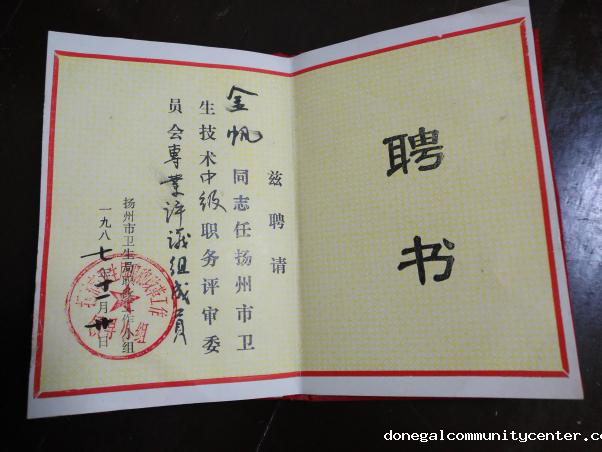 聘书
兹聘请
金帆同志任扬州市卫
生技术中级职务评审委
员会專業评議组成員
扬州市卫生局职改工作小组
一九八七年十一月廿日
donegalcommunitycenter.c